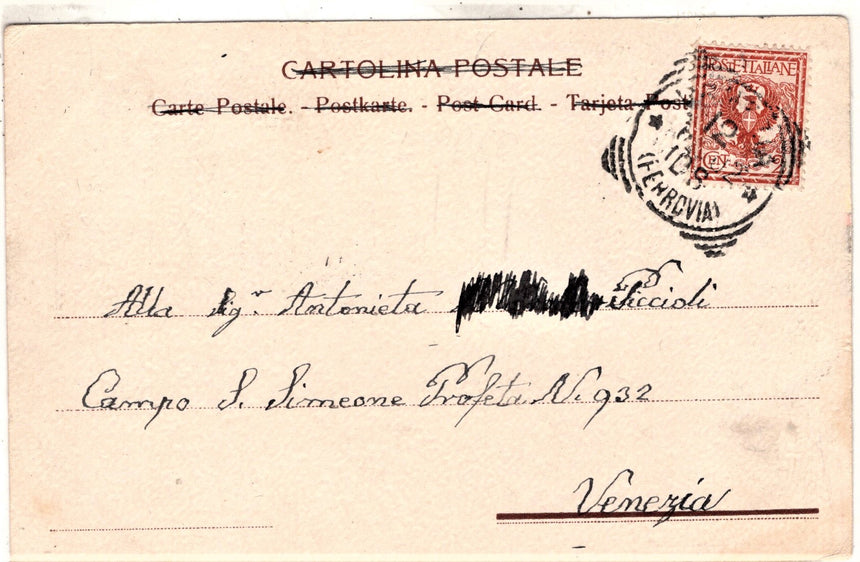 CARTOLINA POSTALE
Carte Postale. - Postkarte. - Post-Card. - Tarjeta Post
POSTE ITALIANE
CEN
(FERROVIA)
Alla Sig.r Antonieta Piccioli
Campo S. Simeone Profeta N. 932
Venezia